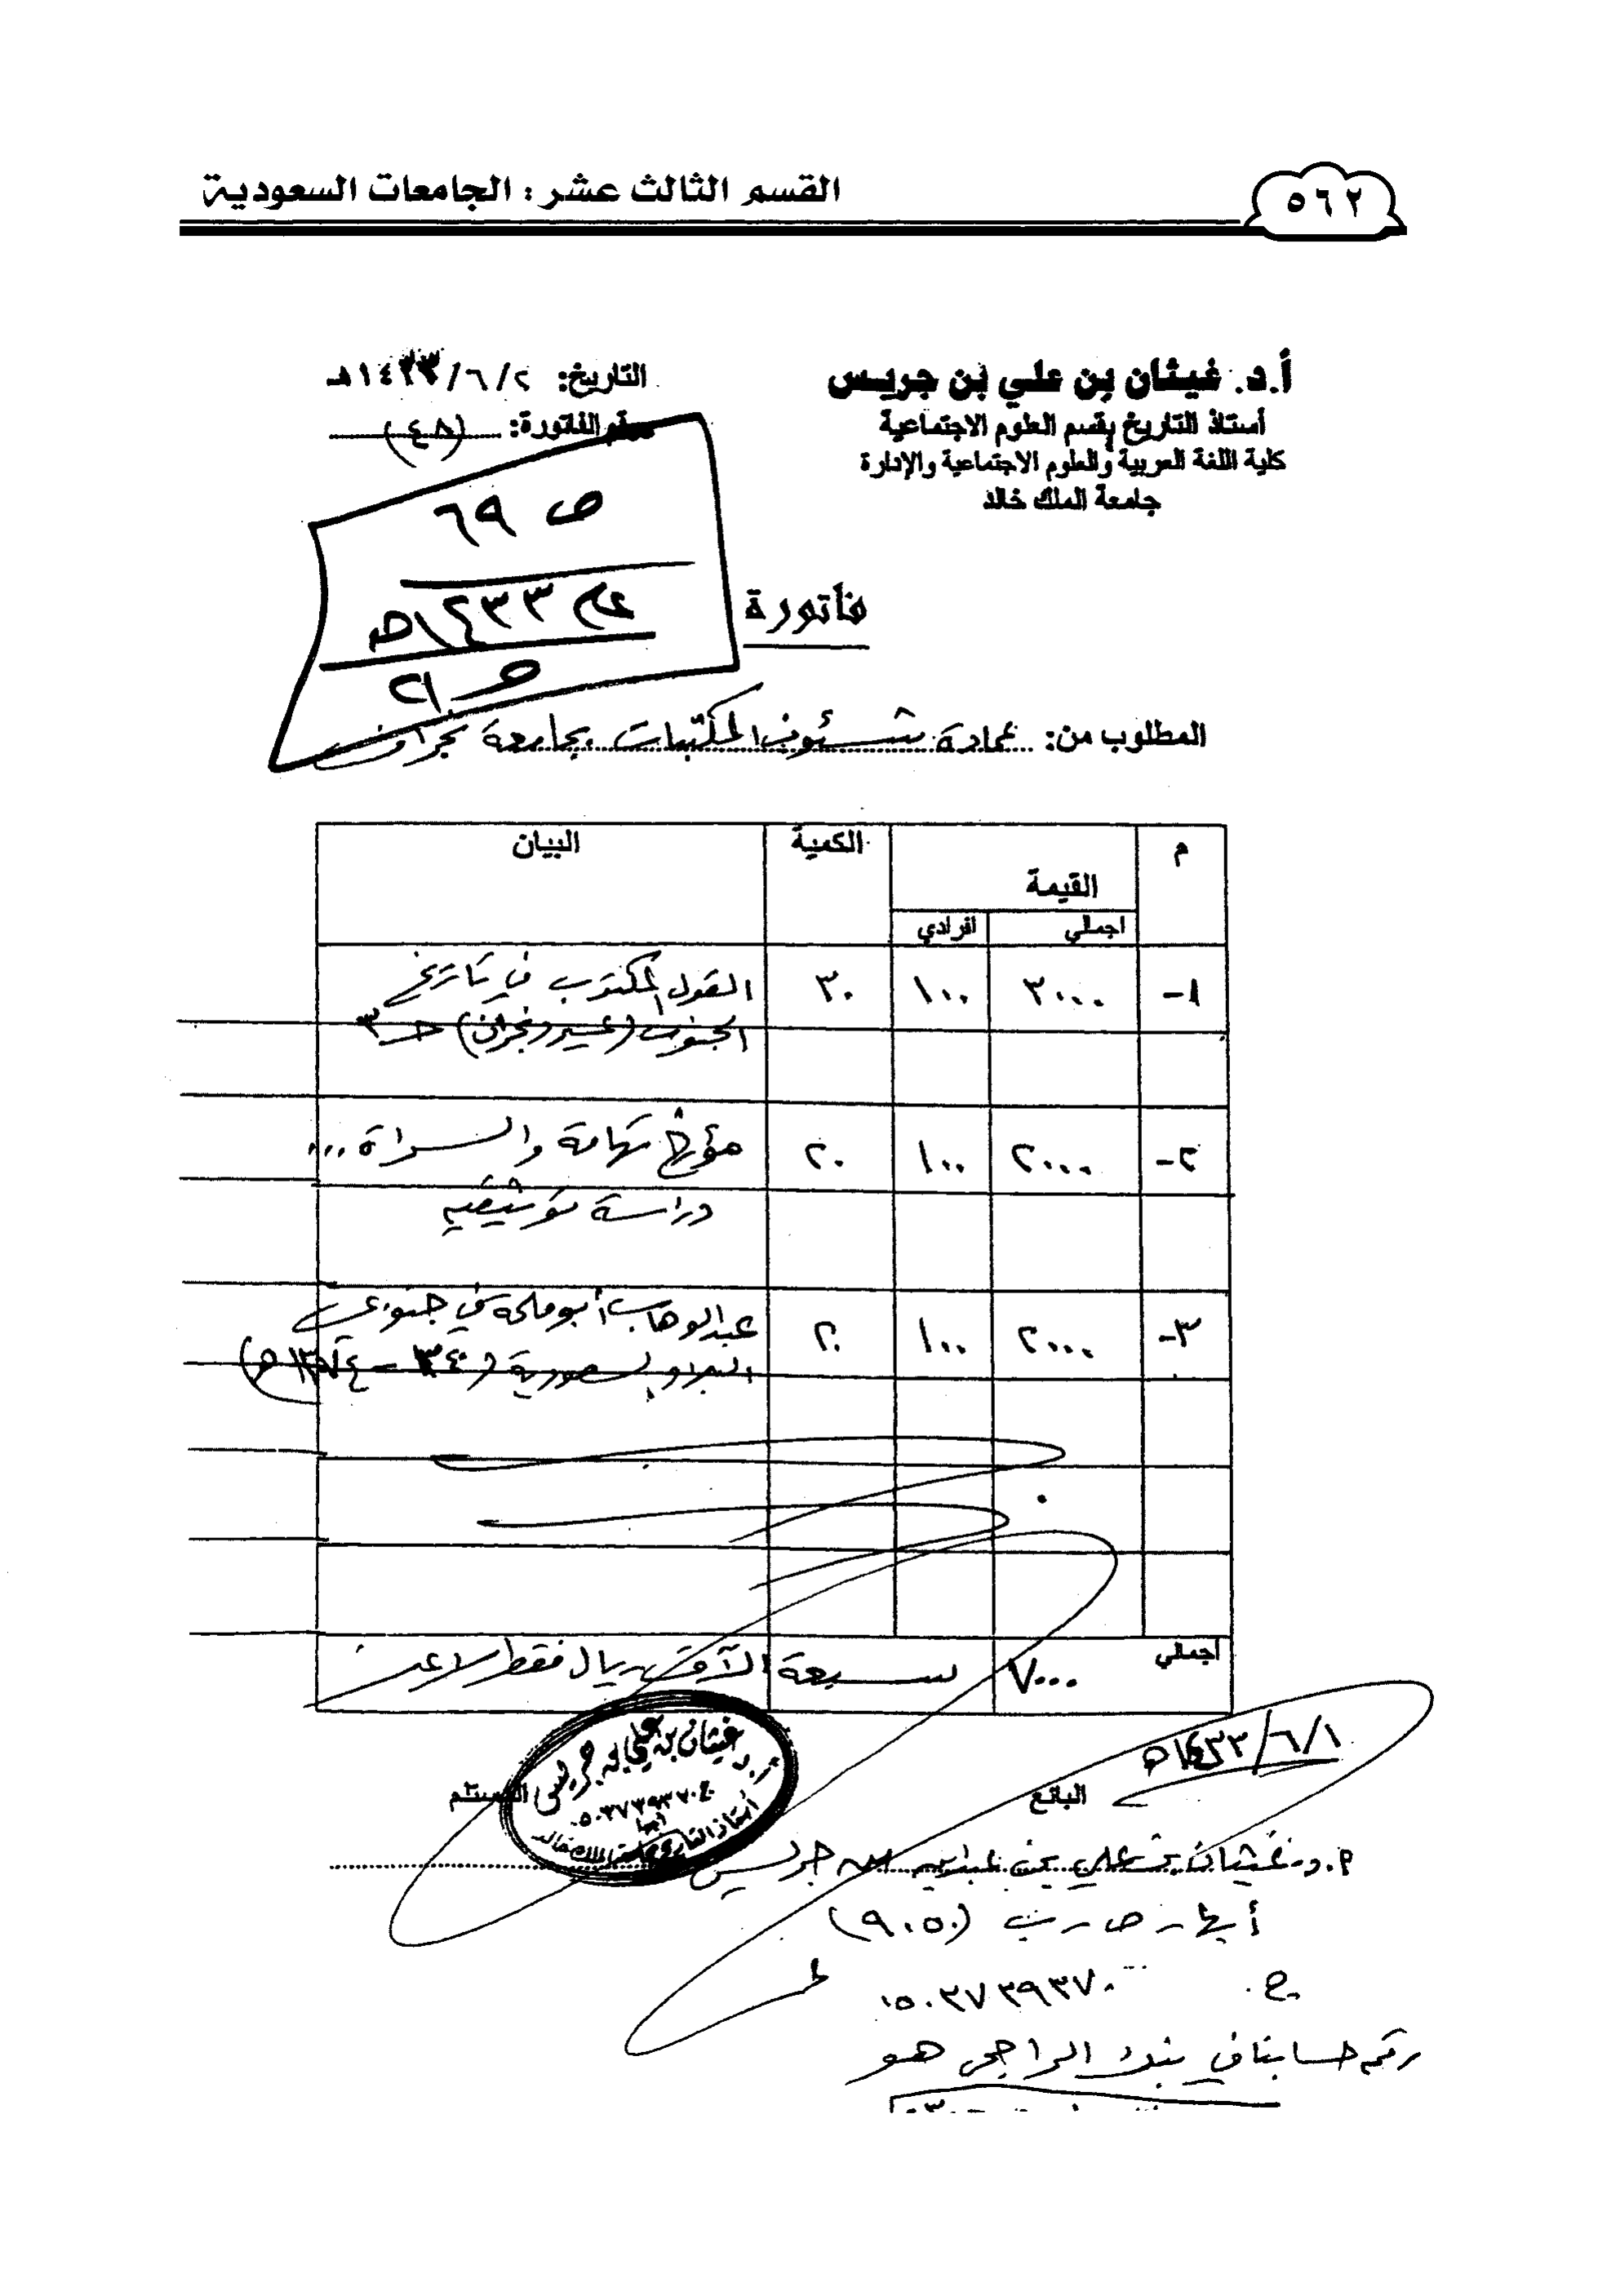 ٥٦٢
القسم الثالث عشر : الجامعات السعودية
أ.د. غيثان بن علي بن جريس
أستاذ التاريخ بقسم العلوم الاجتماعية
كلية اللغة العربية والعلوم الاجتماعية والإدارة
جامعة الملك خالد
التاريخ: ٢/٦/١٤٣٣هـ
رقم الفاتورة: (٤٨)
ص ٦٩
عام ١٤٣٣هـ
فاتورة
المطلوب من: عمادة شئون المكتبات بجامعة نجران
م القيمة الكمية البيان
اجمالي افرادي
١- ٣٠٠٠ ١٠٠ ٣٠ القول المكتوب في تاريخ
الجنوب (عسير ونجران) جـ٣
٢- ٢٠٠٠ ١٠٠ ٢٠ مؤرخ تهامة والسراة ...
دراسة توثيقية
٣- ٢٠٠٠ ١٠٠ ٢٠ عبدالوهاب أبو ملحة في جنوبي
البلاد السعودية
اجمالي ٧٠٠٠ سبعة آلاف ريال فقط لا غير
١/٦/١٤٣٣هـ
البائع
المستلم
أ.د. غيثان بن علي بن جريس
أبها
أ.د. غيثان بن علي بن عبدالله بن جريس
أبها - ص ب (٩٠٥٠)
ج. ٠٥٠٣٧٣٩٣٧٠
رقم حسابنا في بنك الراجحي هو